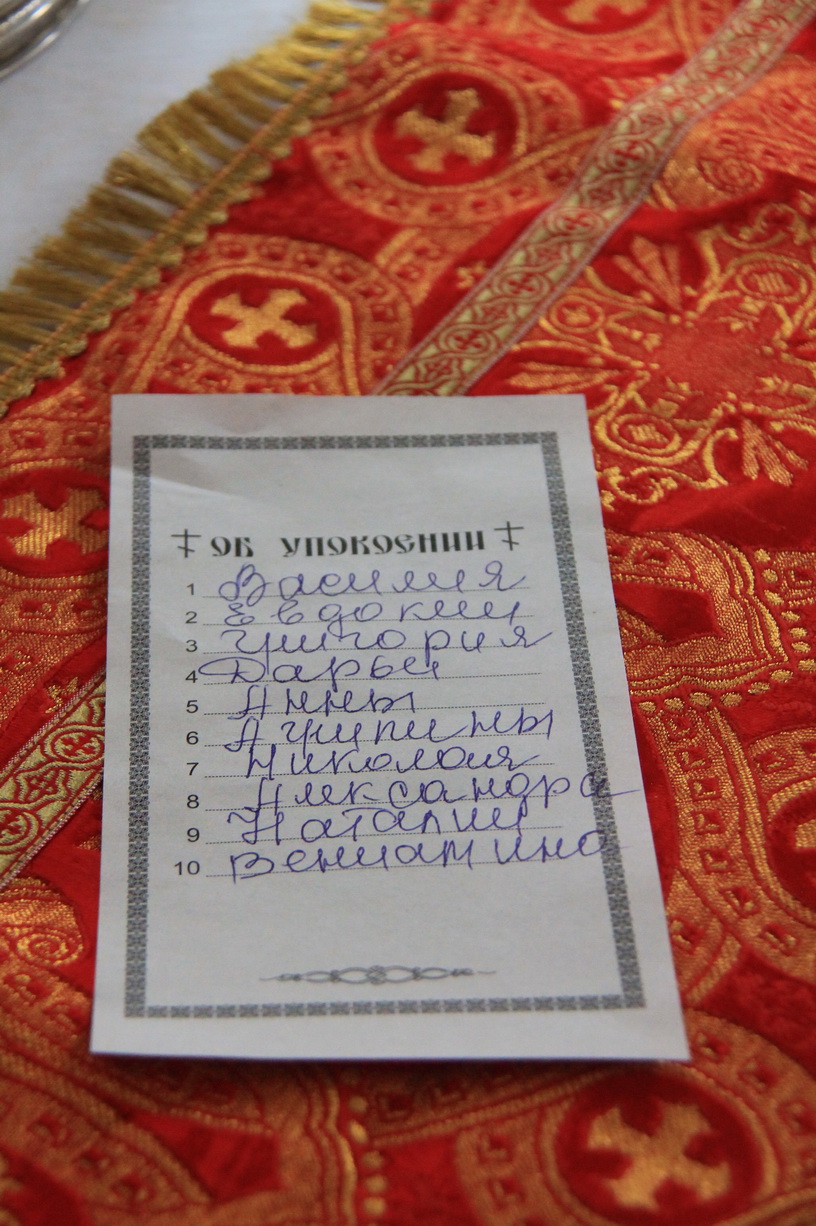 ОБ УПОКОЕНИИ
1 Василия
2 Евдокии
3 Григория
4 Дарьи
5 Анны
6 Агрипины
7 Николая
8 Александра
9 Наталии
10 Вениамина